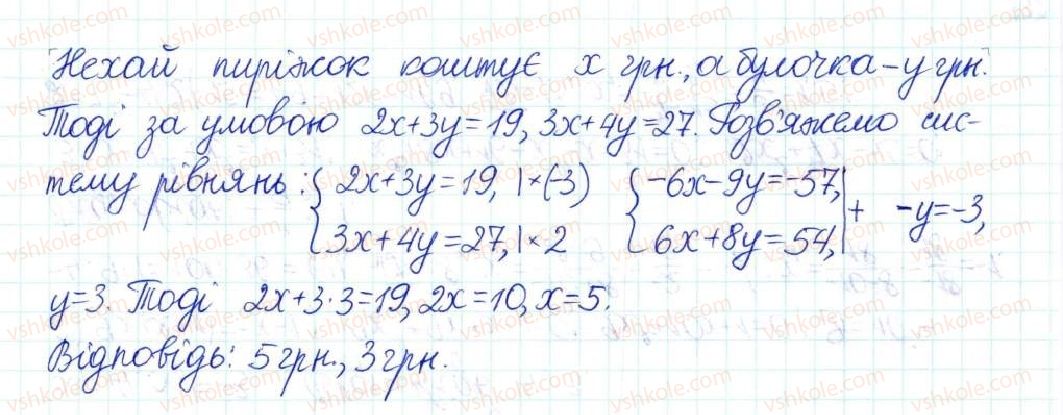 Нехай пиріжок коштує x грн., а булочка – y грн.
Тоді за умовою 2x+3y=19, 3x+4y=27. Розв'яжемо сис-
тему рівнянь: { 2x+3y=19, |×(-3) { -6x-9y=-57, | + -y=-3,
3x+4y=27, |×2 6x+8y=54, |
y=3. Тоді 2x+3·3=19, 2x=10, x=5.
Відповідь: 5 грн., 3 грн.